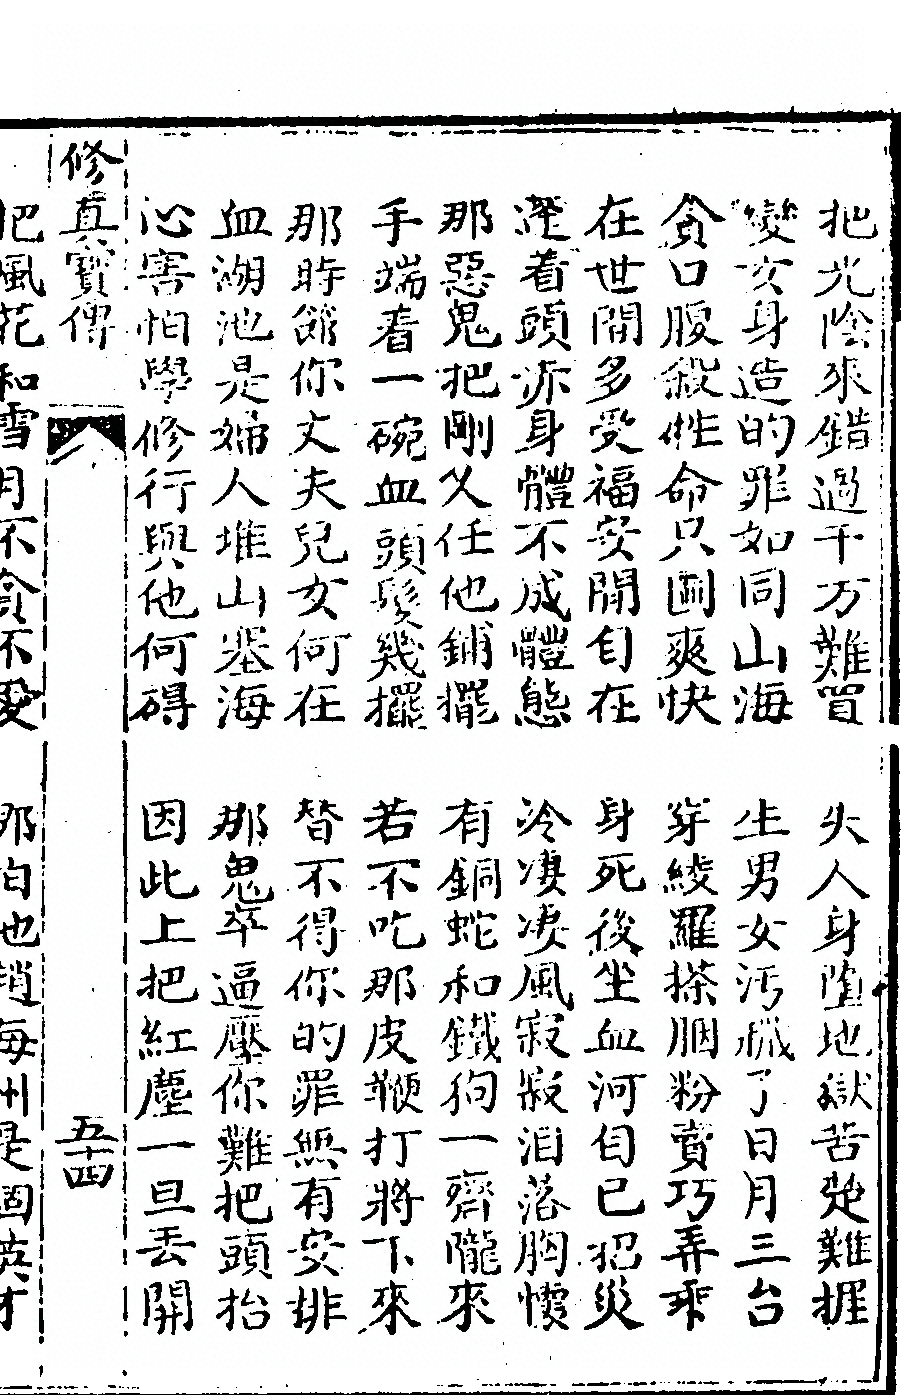 把光陰來錯過千万難買　失人身墮地獄苦楚難捱
變女身造的罪如同山海　生男女汚穢了日月三台
貪口腹殺性命只圖爽快　穿綾羅搽胭粉賣巧弄乖
在世間多受福安閒自在　身死後坐血河自己招災
着頭赤身體不成體態　冷凄凄風寂寂泪落胸懷
那惡鬼把剛义任他鋪擺　有銅蛇和鐵狗一齊隴來
手端着一碗血頭髮幾擺　若不吃那皮鞭打將下來
那時節你丈夫兒女何在　替不得你的罪無有安排
血湖池是婦人堆山塞海　那鬼卒逼壓你難把頭抬
心害怕學修行與他何碍　因此上把紅塵一旦丟開
修真寶傳　五十四
把風花和雪月不貪不愛　那怕也趙每州是個英才